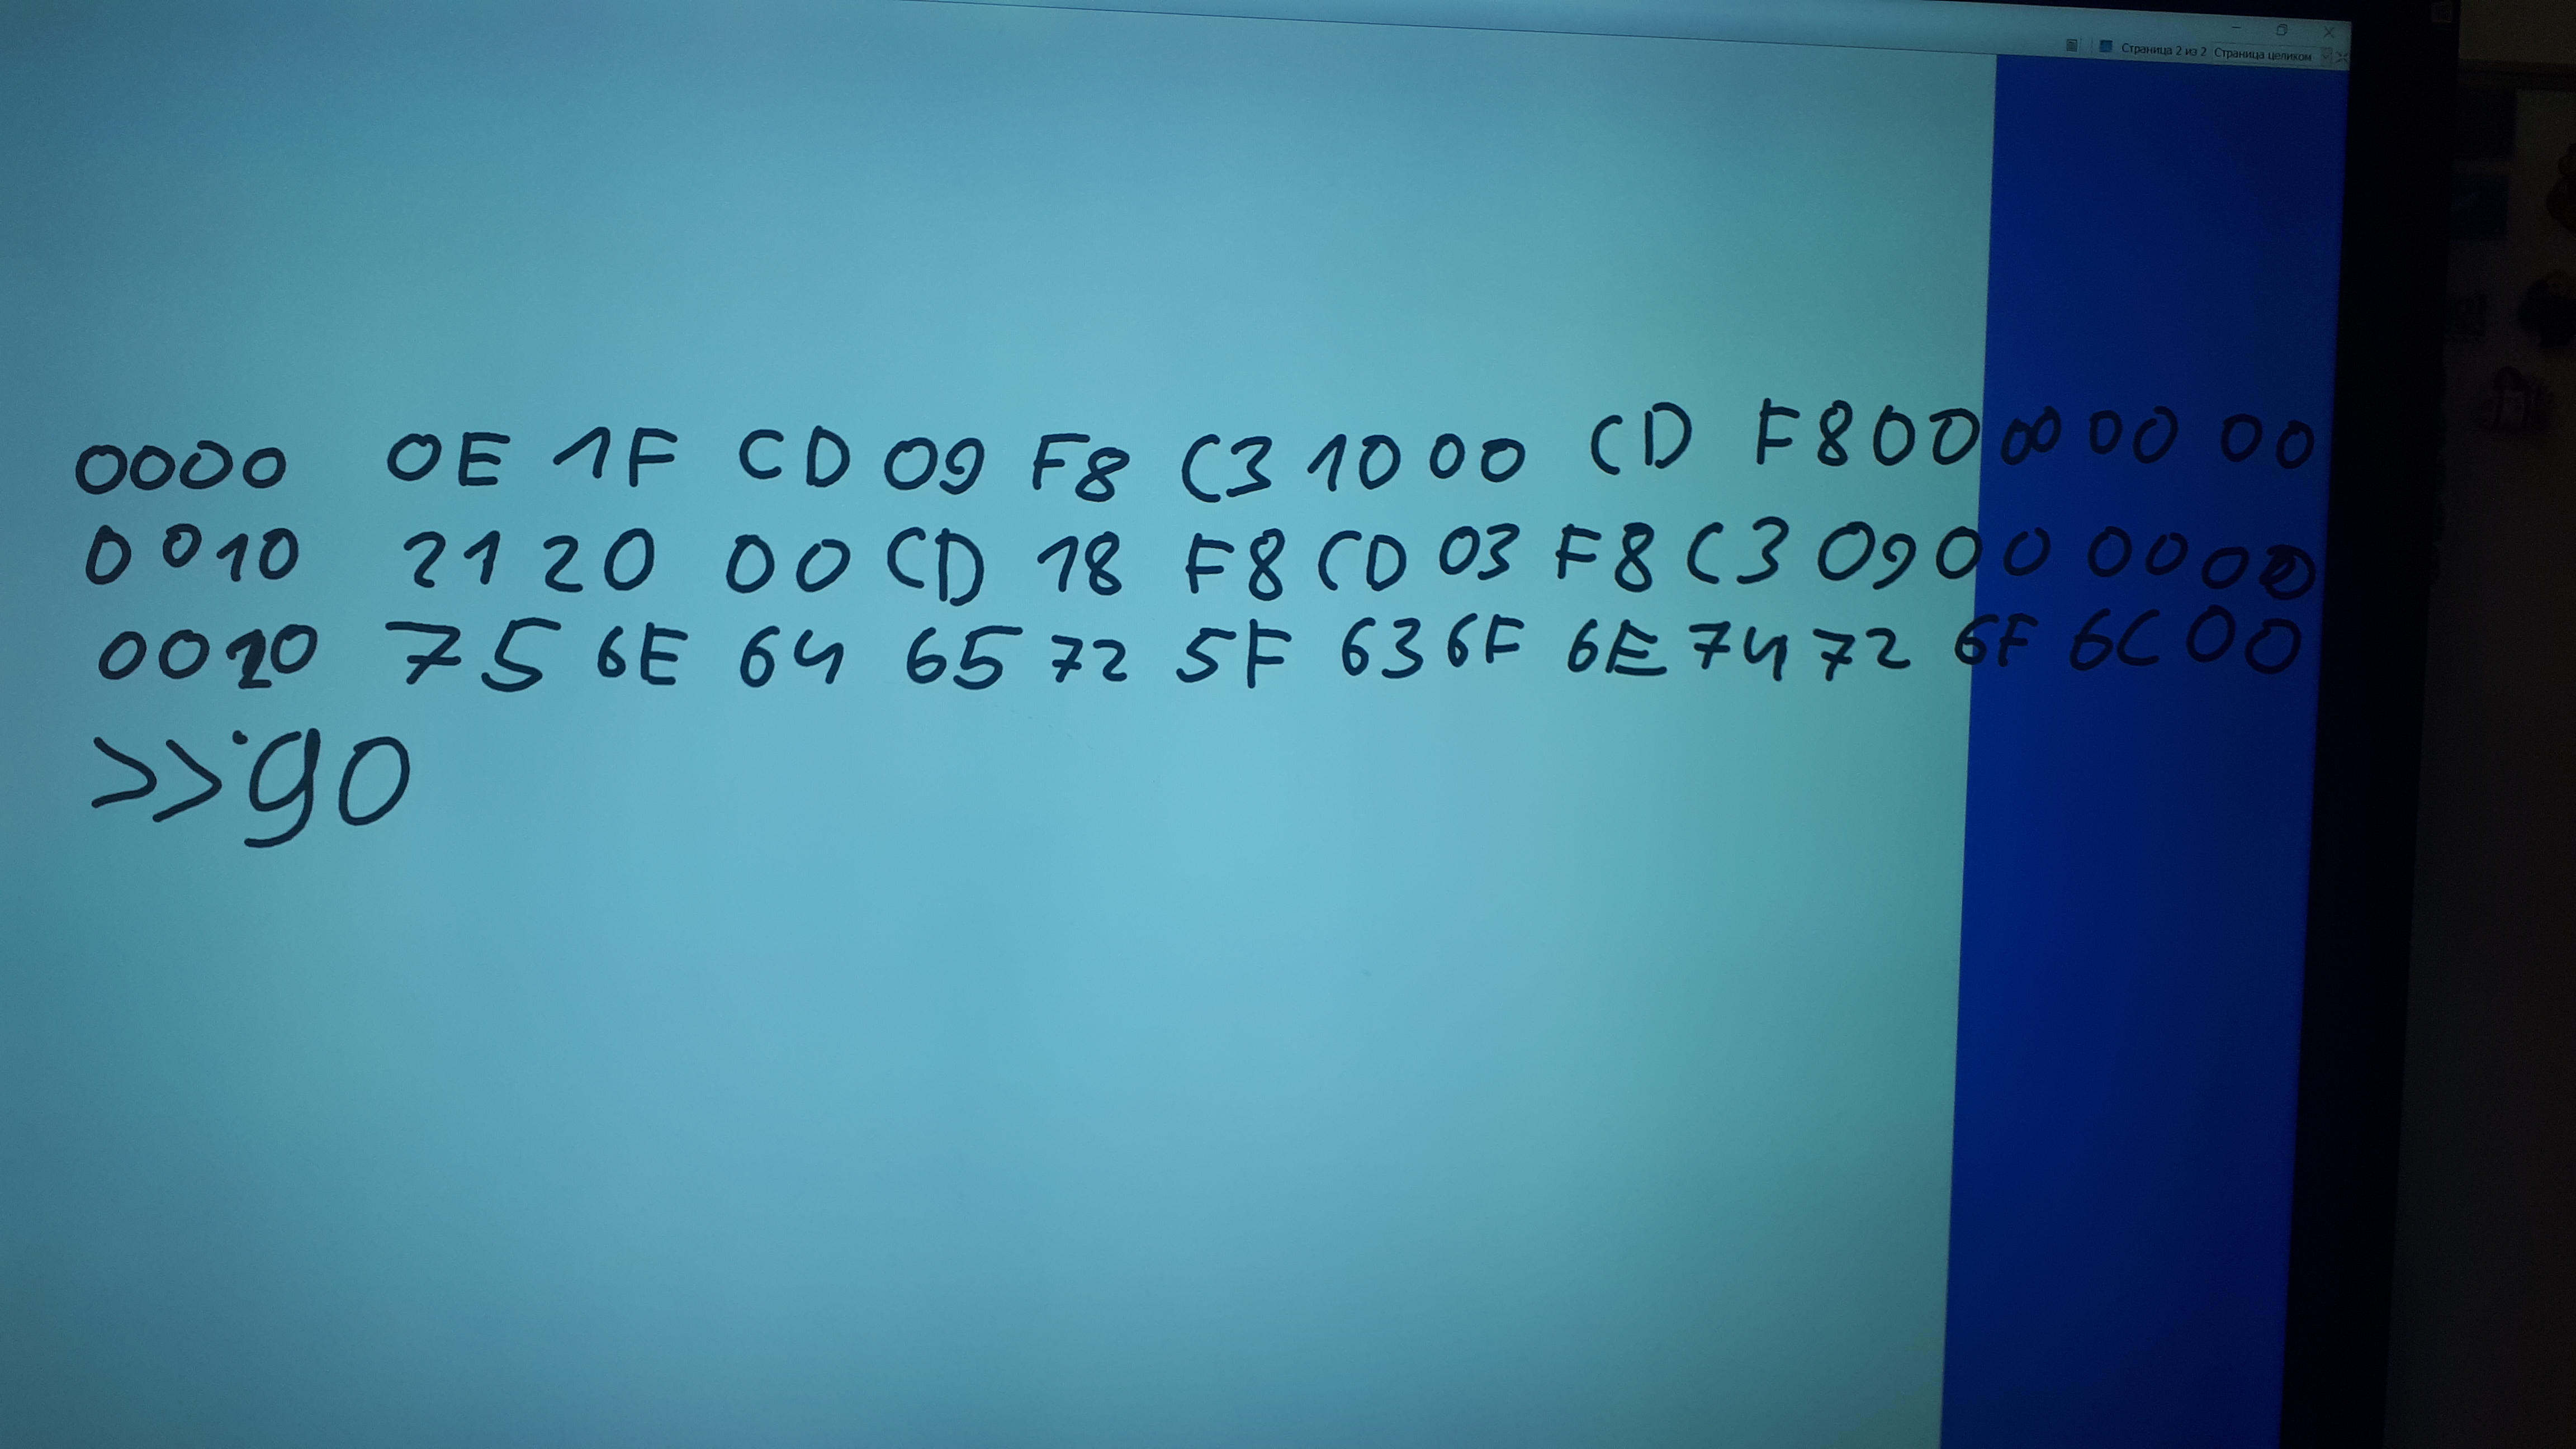 Страница 2 из 2 Страница целиком
0000 0E 1F CD 09 F8 C3 10 00 CD F8 00 00 00 00
0010 21 20 00 CD 18 F8 CD 03 F8 C3 09 00 00 00
0020 75 6E 64 65 72 5F 63 6F 6E 74 72 6F 6C 00
>>go